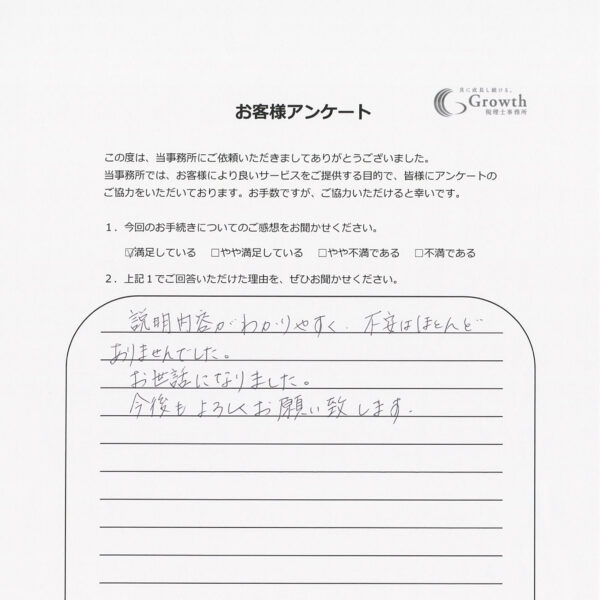 共に成長し続ける。
Growth
税理士事務所
お客様アンケート
この度は、当事務所にご依頼いただきましてありがとうございました。
当事務所では、お客様により良いサービスをご提供する目的で、皆様にアンケートの
ご協力をいただいております。お手数ですが、ご協力いただけると幸いです。
1．今回のお手続きについてのご感想をお聞かせください。
☑満足している　□やや満足している　□やや不満である　□不満である
2．上記1でご回答いただけた理由を、ぜひお聞かせください。
説明内容がわかりやすく、不安はほとんど
ありませんでした。
お世話になりました。
今後もよろしくお願い致します.